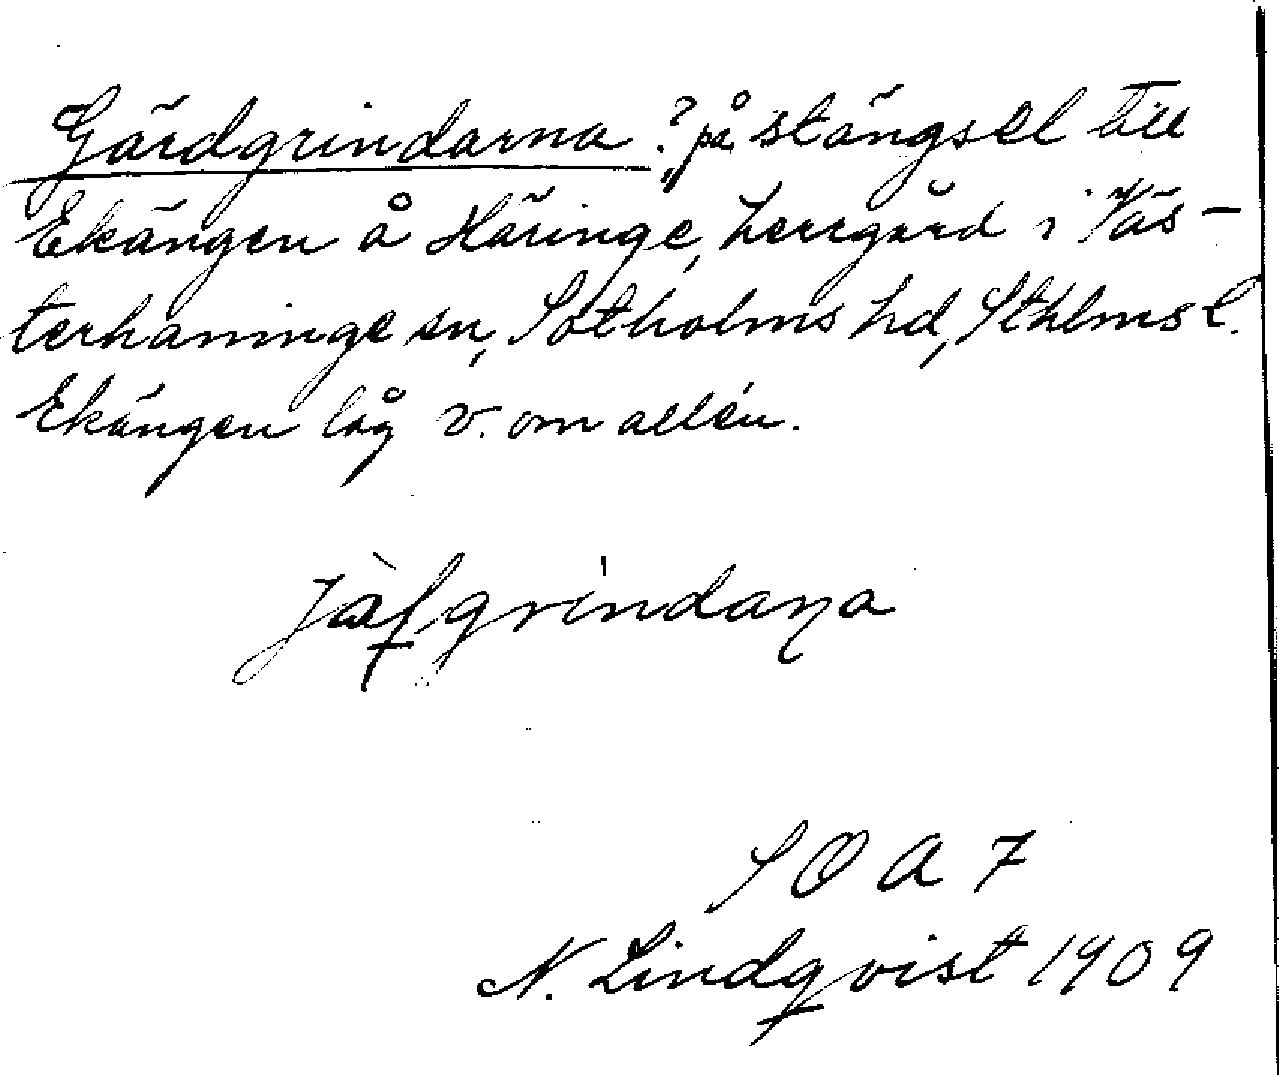 Gärdgrindarna? på stängsel till
Ekängen å Häringe, herrgård i Väs-
terhaninge sn, Sotholms hd, Sthlms l.
Ekängen låg v. om allén.
SOA 7
N. Lindqvist 1909